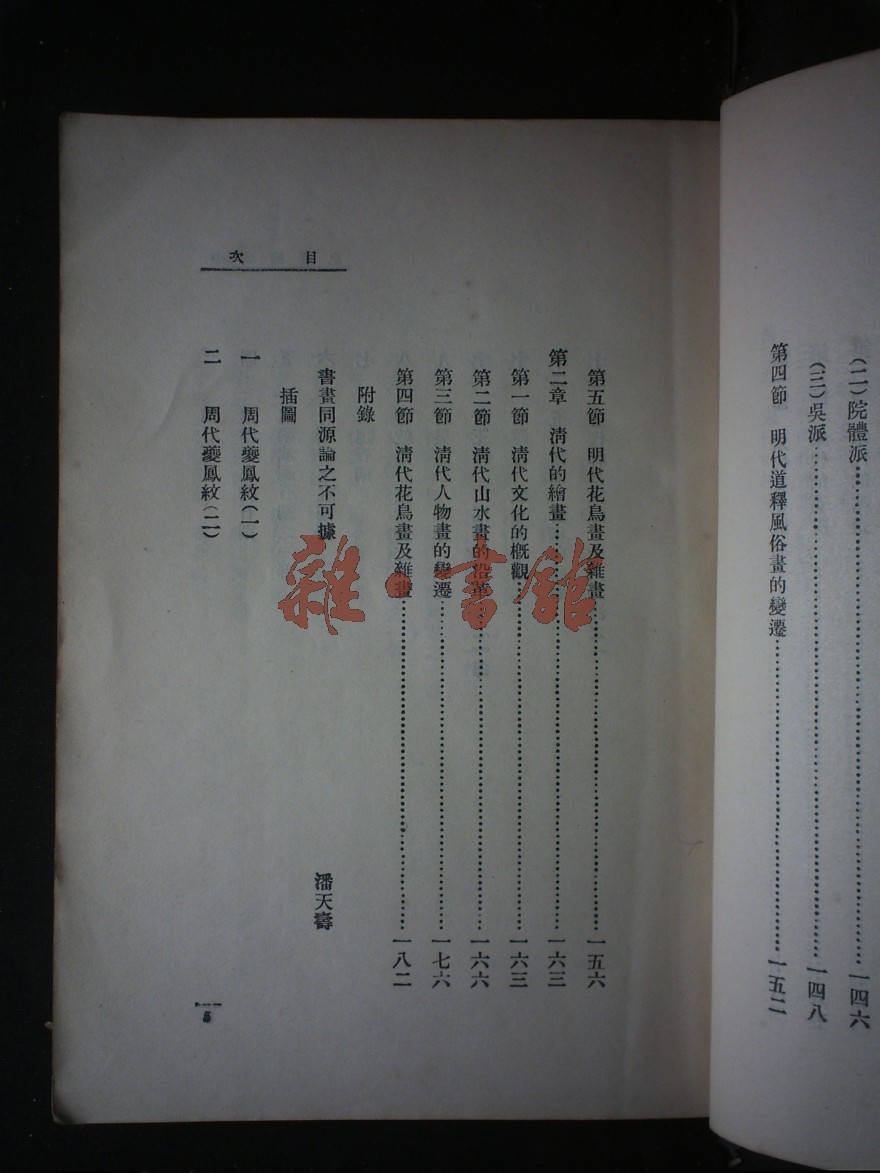 (二)院體派……一四六
(三)吳派……一四八
第四節 明代道釋風俗畫的變遷……一五二
目次
第五節 明代花鳥畫及雜畫……一五六
第二章 清代的繪畫……一六三
第一節 清代文化的概觀……一六三
第二節 清代山水畫的沿革……一六六
第三節 清代人物畫的變遷……一七六
第四節 清代花鳥畫及雜畫……一八二
附錄
書畫同源論之不可據 潘天壽
插圖
一 周代夔鳳紋(一)
二 周代夔鳳紋(二)
5
雜書館